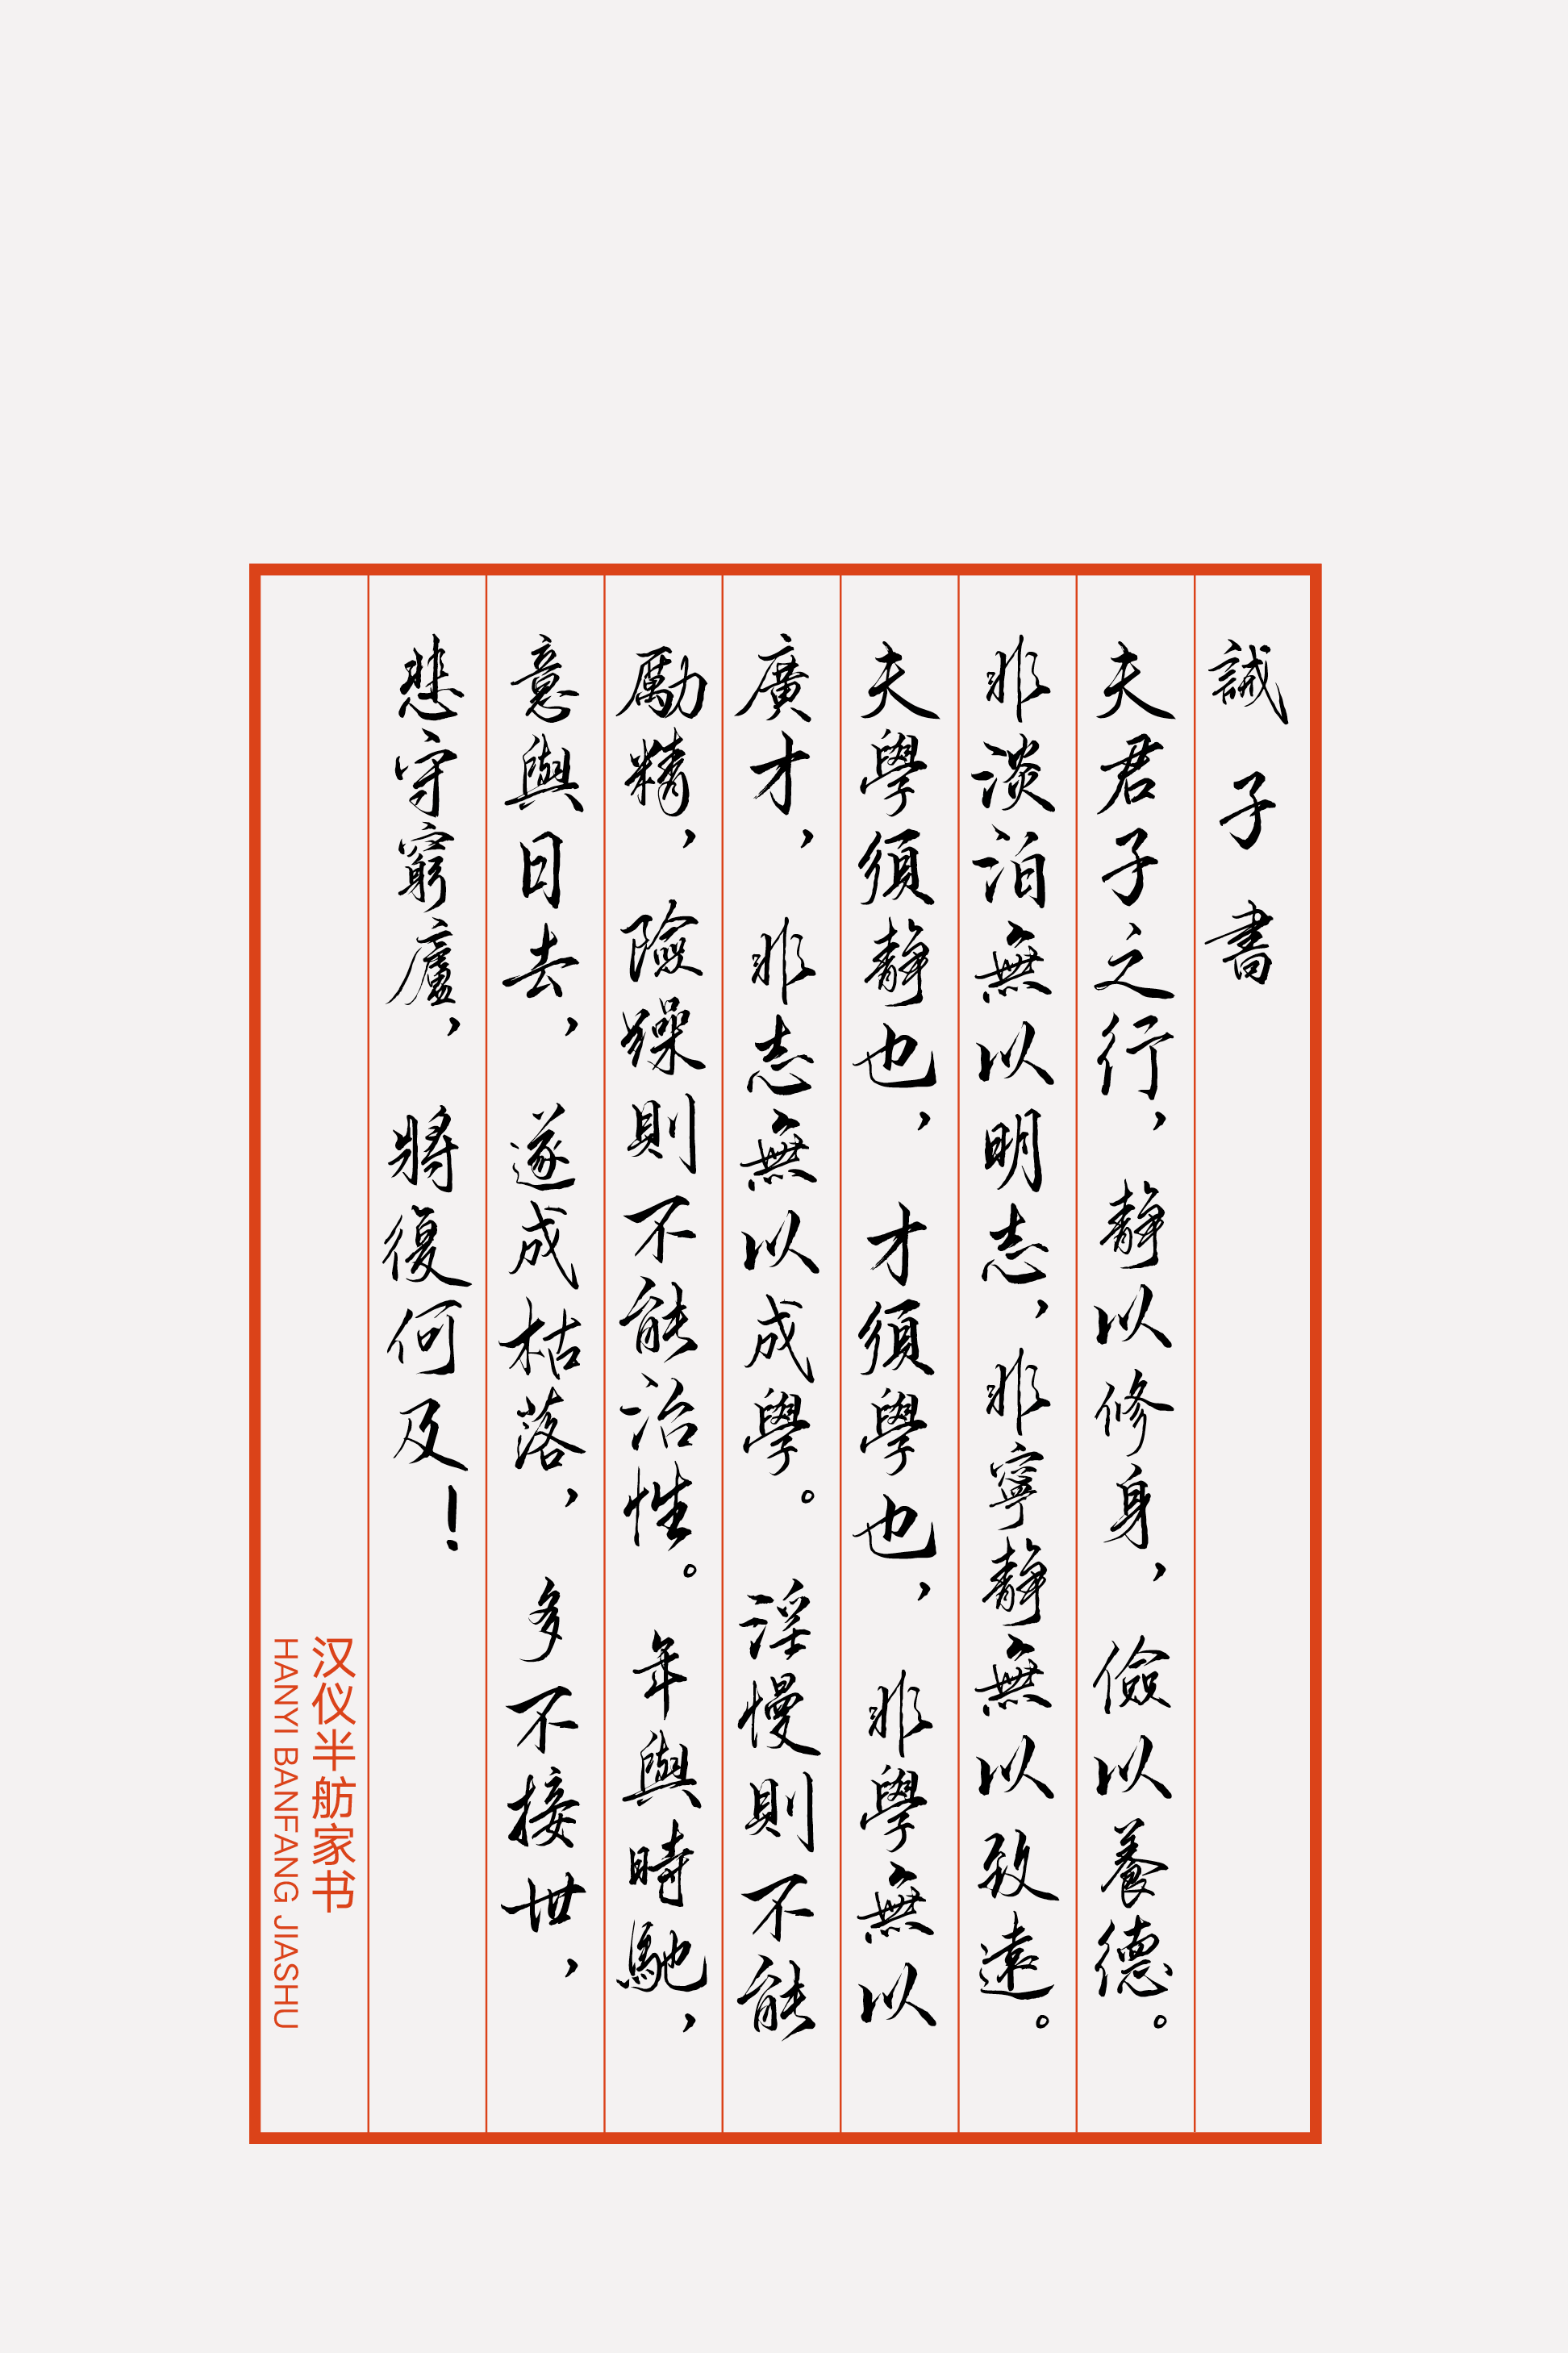 誡子書
夫君子之行，靜以修身，儉以養德。
非淡泊無以明志，非寧靜無以致遠。
夫學須靜也，才須學也，非學無以
廣才，非志無以成學。淫慢則不能
勵精，險躁則不能治性。年與時馳，
意與日去，遂成枯落，多不接世，
悲守窮廬，將復何及！
汉仪半舫家书
HANYI BANFANG JIASHU